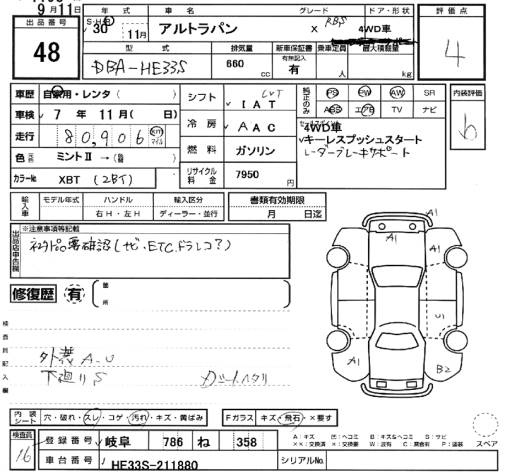 9月11日
年式 車名 グレード ドア・形状 評価点
出品番号 48
S・H・R 30 11月 アルトラパン X RBS 4WD車 4
型式 排気量 新車保証書 乗車定員 最大積載量
DBA-HE33S 660 cc 有無記入 有 人 kg
車歴 自家用・レンタ( ) シフト CVT IAT 純正のみ PS PW AW SR 内装評価
車検 7年 11月( 日) 冷房 AAC ABS エアB TV ナビ b
走行 80,906 km マイル 燃料 ガソリン 4WD車
キーレスプッシュスタート
レーダーブレーキサポート
色 ミントⅡ → ( )
リサイクル料金 7950
カラーNo XBT (ZBT)
輸入車 モデル年式 ハンドル 輸入区分 書類有効期限
右H・左H ディーラー・並行 月 日迄
出品店申告欄 ※注意事項等記載
修復歴 有 箇所
A1 A1 A1
U1
A1 B2
検査員記入欄
外装A.U
下廻りS
内装シート 穴・破れ・スレ・コゲ・汚れ・キズ・黄ばみ Fガラス キズ・飛石・×要す
検査員 16 登録番号 岐阜 786 ね 358
A:キズ E:エヘコミ B:キズ&ヘコミ S:サビ
××:交換済 ×:要交換 W:波有 C:腐食有 P:塗装 スペア
車台番号 HE33S-211880 シリアルNo.